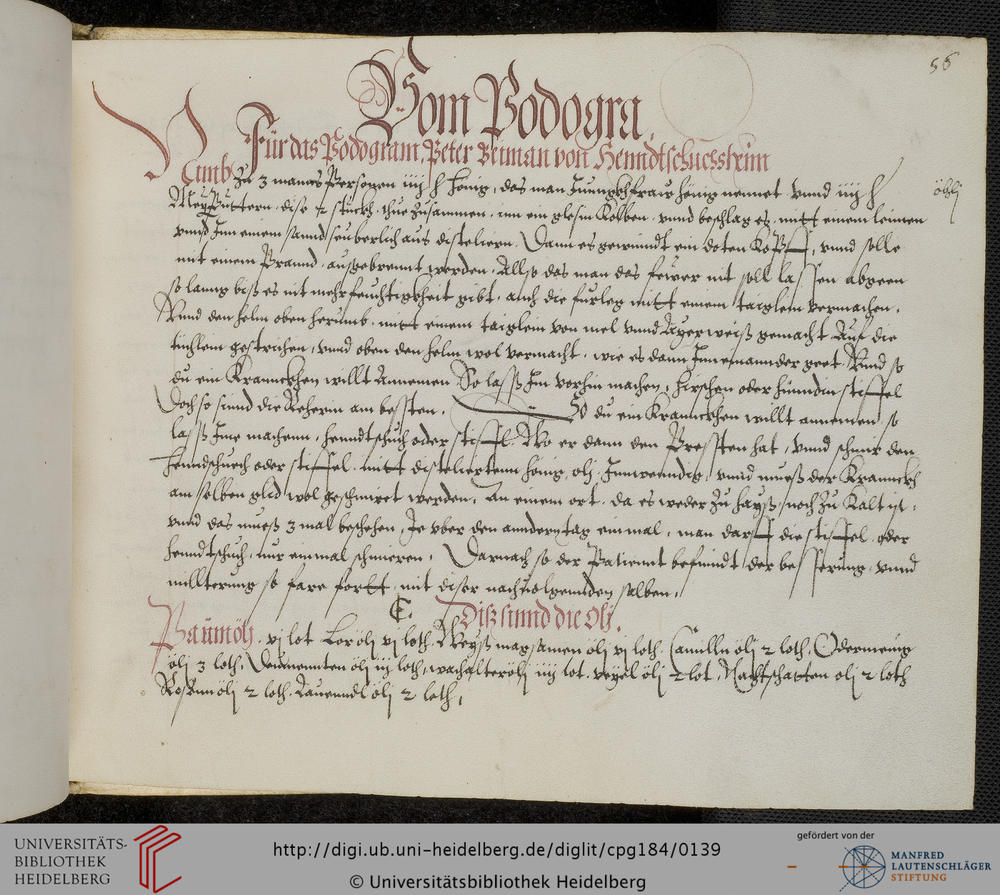 56
Vom Podogra.
Für das Podogram, Peter Betman von Henndtschuessheim
Nimb zu 3 manns Personen iiij ℔ honig, das man Jungkhfraw hönig nennet vnnd iiij ℔
öhlj
Meyῠ Puttern, dise 2 stückh thue zusammen, inn ein glesin Kolben, vnnd beschlag es mitt einem leimen
vnnd Im einem sannd seuberlich aus disteliern. Dann es gewindt ein doten Kopff, vnnd solle
mit einem Brannd ausgebrennt werden, Allso das man das fewer nit soll lassen abgeen
so lanng biss es nit mehr feuchtigkheit gibt, auch die furleg mitt einem taiglein vermachen.
Vnnd den helm oben herumb, mitt einem taiglein von mel vnnd Ayerweiß gemacht Auf die
tüchlein gestrichen, vnnd oben den helm wol vermacht, wie es dann Inneinannder geet, Vnnd so
du ein Krannckhen willt Annemen So lass Im vorhin machen, hirschen oder hündin stiffel
Doch so sinnd die Reherin am bessten. So du ein Krannckhen willt annemen, so
lass Ime machenn, henndtschuch oder stiffl, Wo er dann den Pressten hat, vnnd schmir den
henndschuech oder stiffel, mitt disteliertem hönig, olj Innwenndig, vnnd muess der Kranckh
am selben glid wol geschmiret werden, An einem ort, da es weder zu hayß, noch zu kalt ist,
vnnd das muess 3 mal beschehen, Je vber den anndern tag einmal, man darff die stiffel, oder
henndtschuch, nur einmal schmieren. Darnach so der Patiennt befindt der besserung, vnnd
millterung, so fare fortt, mit diser nachuolgennden salben.
C. Diß sinnd die Olj.
Baumölj vj lot Lorölj vj loth, Weyß magsamen ölj vj loth, Camilln ölj 2 loth, Odermeing
ölj 3 loth, Deumenten ölj iij loth, wachalterölj iiij lot, veyel ölj 2 lot, Nachtschatten olj 2 loth
Rosennölj 2 loth, Lauenndl ölj 2 loth,
UNIVERSITÄTS-
BIBLIOTHEK
HEIDELBERG
http://digi.ub.uni-heidelberg.de/diglit/cpg184/0139
© Universitätsbibliothek Heidelberg
gefördert von der
MANFRED
LAUTENSCHLÄGER
STIFTUNG